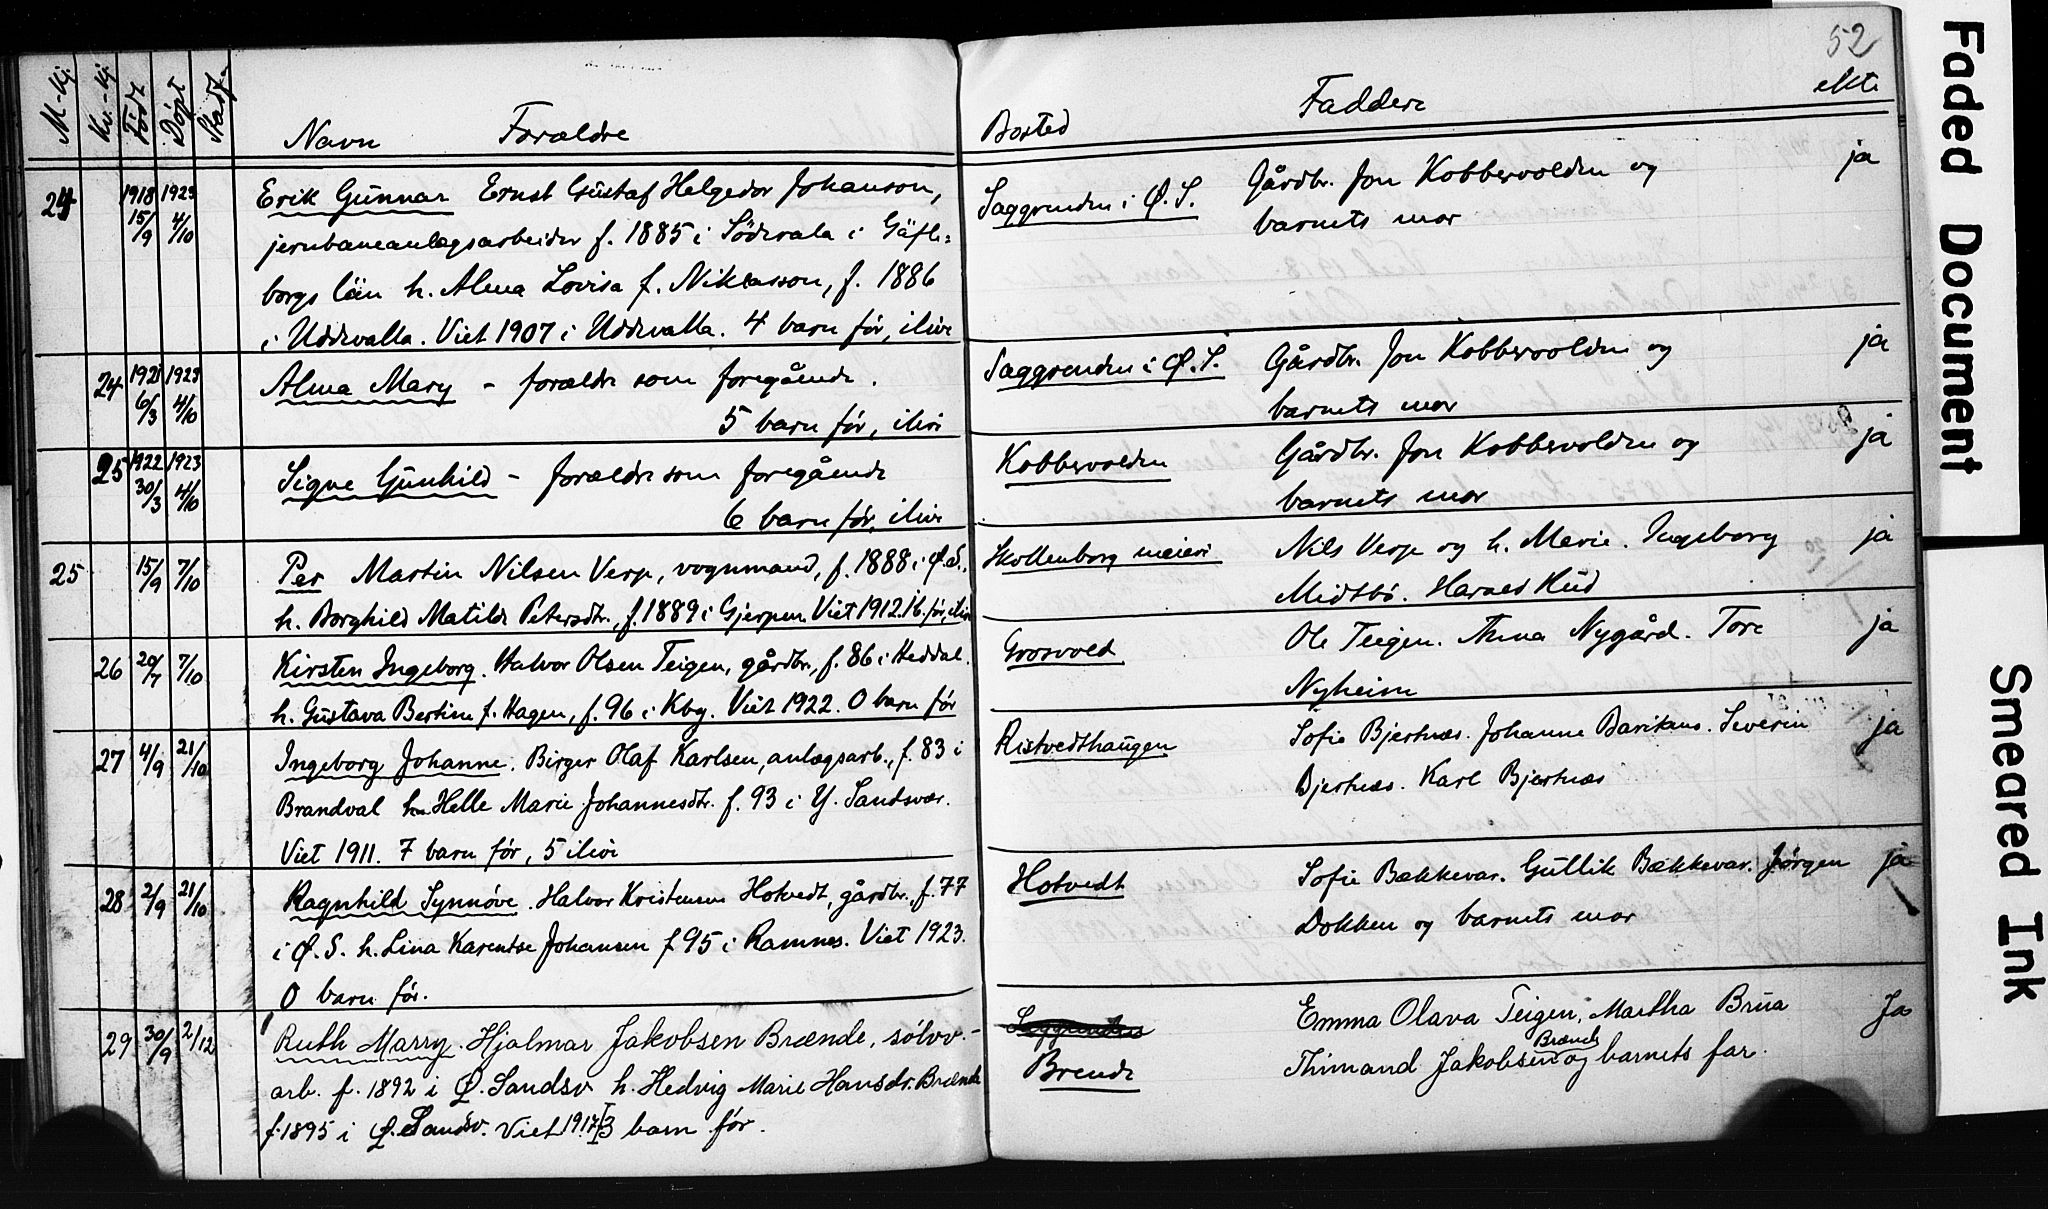 52
M-Kj. Kv.-Kj. Född Döpt Stadf.
Navn Forældre Bosted Faddere ekte
24 1918 15/9 1923 4/10 Erik Gunnar Ernst Gustaf Helgedor Johanson,
jernbaneanlægsarbeider f. 1885 i Söderala i Gäfle=
borgs län h. Alma Lovisa f. Niklasson, f. 1886
i Uddevalla. Viet 1907 i Uddevalla. 4 barn før, ilive
Saggrenden i Ø. S. Gårdbr. Jon Kobbervolden og ja
barnets mor
24 1921 6/3 1923 4/10 Alma Mary - forældre som foregående.
5 barn før, ilive
Saggrenden i Ø. S. Gårdbr. Jon Kobbervolden og ja
barnets mor
25 1922 30/3 1923 4/10 Signe Gunhild - forældre som foregående
6 barn før, ilive
Kobbervolden Gårdbr. Jon Kobbervolden og ja
barnets mor
25 15/9 7/10 Per Martin Nilsen Verp, vognmand, f. 1888 i Ø.S.,
h. Borghild Matilde Petersdtr., f. 1889 i Gjerpen. Viet 1912. 1 b. før, ilive
Skollenborg meieri Nils Verp og h. Marie. Ingeborg ja
Midtbö. Harald Hud
26 20/7 7/10 Kirsten Ingeborg. Halvor Olsen Teigen, gårdbr., f. 86 i Heddal.
h. Gustava Bertine f. Hagen, f. 96 i Kbg. Viet 1922. 0 barn før
Grosvold Ole Teigen. Anna Nygård. Tore ja
Nyheim
27 4/9 21/10 Ingeborg Johanne. Birger Olaf Karlsen, anlægsarb., f. 83 i
Brandval h. Helle Marie Johannesdtr. f. 93 i Y. Sandsvær.
Viet 1911. 7 barn før, 5 ilive
Ristvedthaugen Sofie Bjertnæs. Johanne Barikaas. Severin ja
Bjertnæs. Karl Bjertnæs
28 2/9 21/10 Ragnhild Synnøve. Halvor Kristensen Hotvedt, gårdbr., f. 77
i Ø. S. h. Lina Karentse Johansen f. 95 i Ramnes. Viet 1923.
0 barn før.
Hotvedt Sofie Bækkevar. Gullik Bækkevar. Jørgen ja
Dokken og barnets mor
29 30/9 2/12 Ruth Marry. Hjalmar Jakobsen Brænde, sølvv.-
arb. f. 1892 i Ø. Sandsv h. Hedvig Marie Hansdr. Brænde
f. 1895 i Ø. Sandsv. Viet 1917 3 barn før.
Saggrenden
Brende
Emma Olava Teigen, Martha Brua Ja
Brænde
Thimand Jakobsen og barnets far.
Faded Document
Smeared Ink